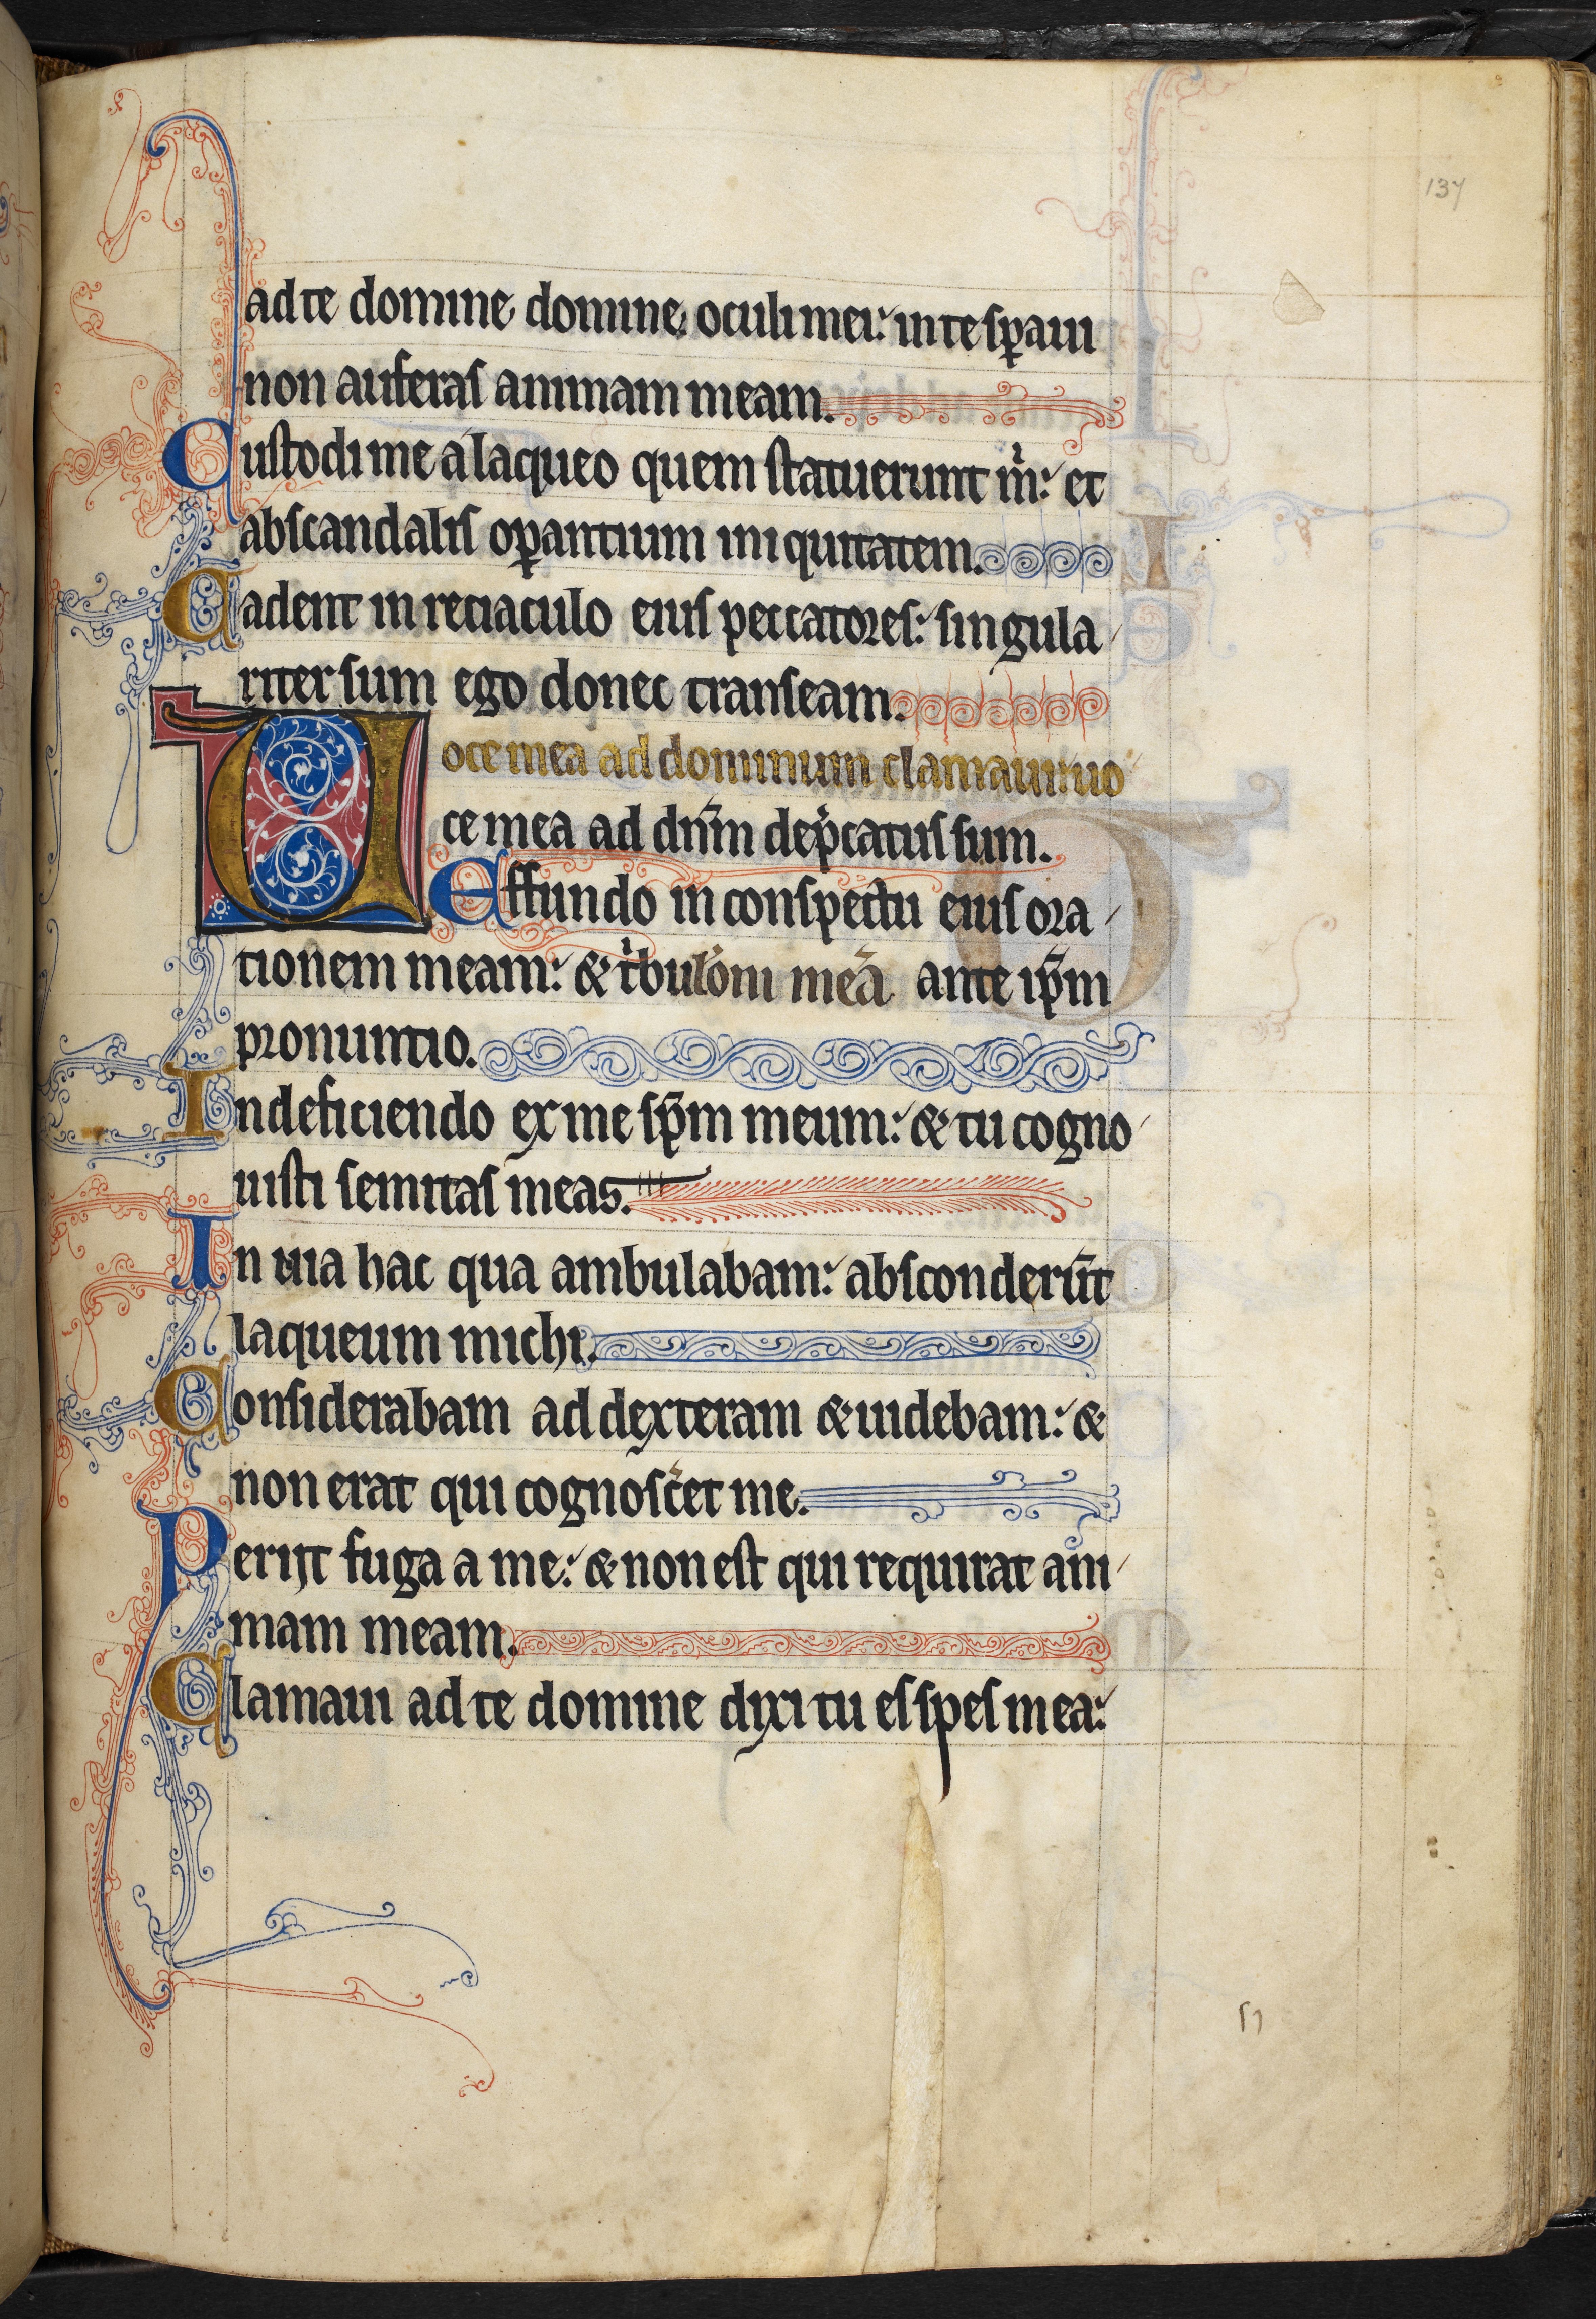 137
ad te domine domine oculi mei: in te sp̄aui
non auferas animam meam.
Custodi me a laqueo quem statuerunt m̄: et
ab scandalis op̄antium iniquitatem.
Cadent in retiaculo eius peccatores: singula
riter sum ego donec transeam.
Uoce mea ad dominum clamaui: uo
ce mea ad dn̄m dep̄catus sum.
Effundo in conspectu eius ora
tionem meam: & tͥbulōm meā ante ip̄m
pronuntio.
In deficiendo ex me sp̄m meum: & tu cogno
uisti semitas meas.
In uia hac qua ambulabam: absconderūt
laqueum michi.
Considerabam ad dexteram & uidebam: &
non erat qui cognosc̄et me.
Periit fuga a me: & non est qui requirat ani
mam meam.
Clamaui ad te domine dixi tu es spes mea: